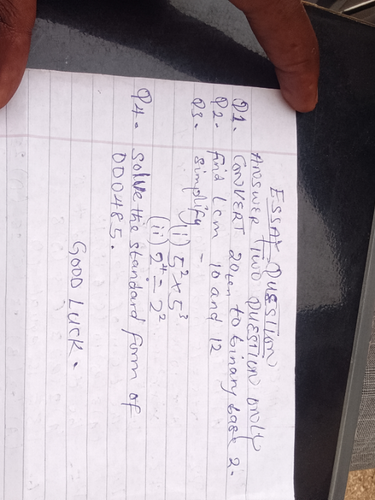 ESSAY QUESTION
ANSWER TWO QUESTION ONLY
Q1. CONVERT 20ten to binary base 2.
Q2. find Lcm 10 and 12
Q3. simplify -
(i) 5² × 5³
(ii) 2⁴ ÷ 2²
Q4. Solve the standard form of
000485.
GOOD LUCK.